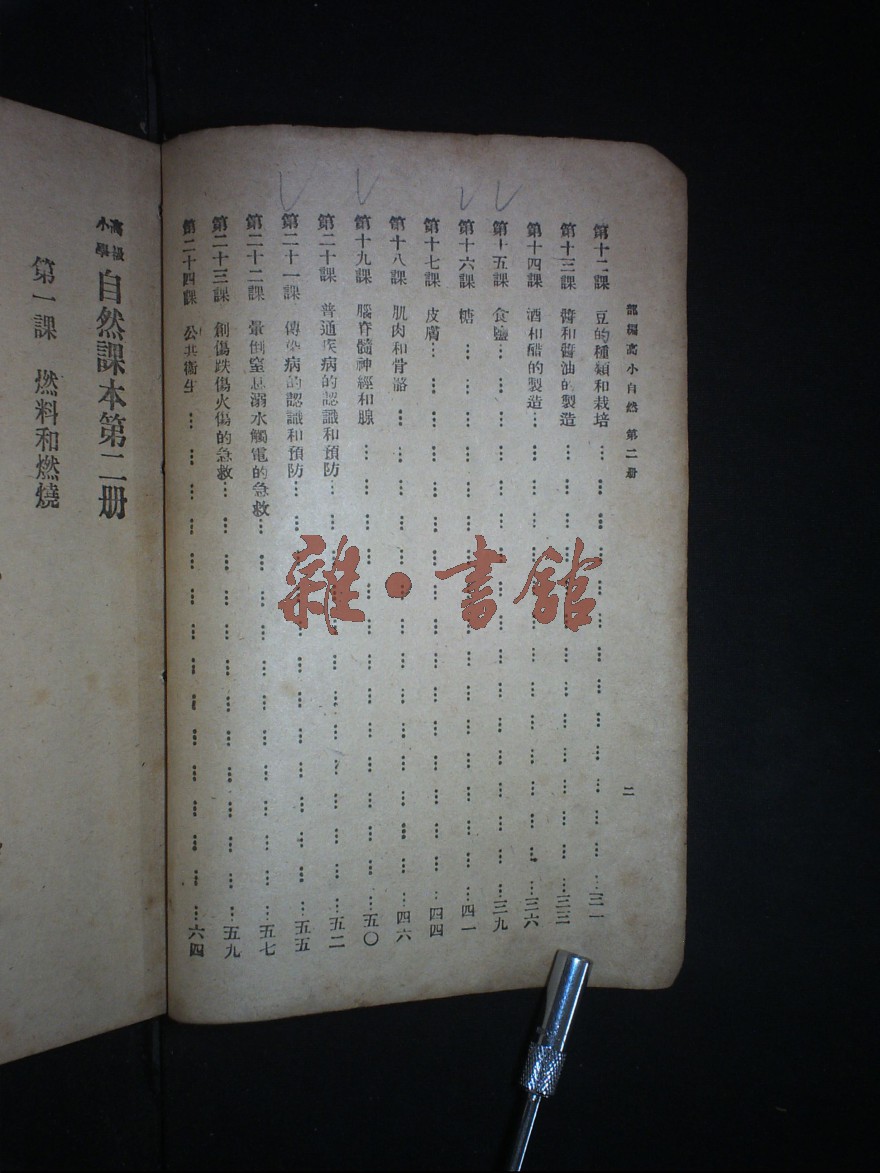 部編高小自然 第二册
二
第十二課 豆的種類和栽培 三一
第十三課 醬和醬油的製造 三三
第十四課 酒和醋的製造 三六
第十五課 食鹽 三九
第十六課 糖 四一
第十七課 皮膚 四四
第十八課 肌肉和骨骼 四六
第十九課 腦脊髓神經和腺 五〇
第二十課 普通疾病的認識和預防 五二
第二十一課 傳染病的認識和預防 五五
第二十二課 暈倒窒息溺水觸電的急救 五七
第二十三課 創傷跌傷火傷的急救 五九
第二十四課 公共衞生 六四
高級小學 自然課本第二册
第一課 燃料和燃燒
雜·書館